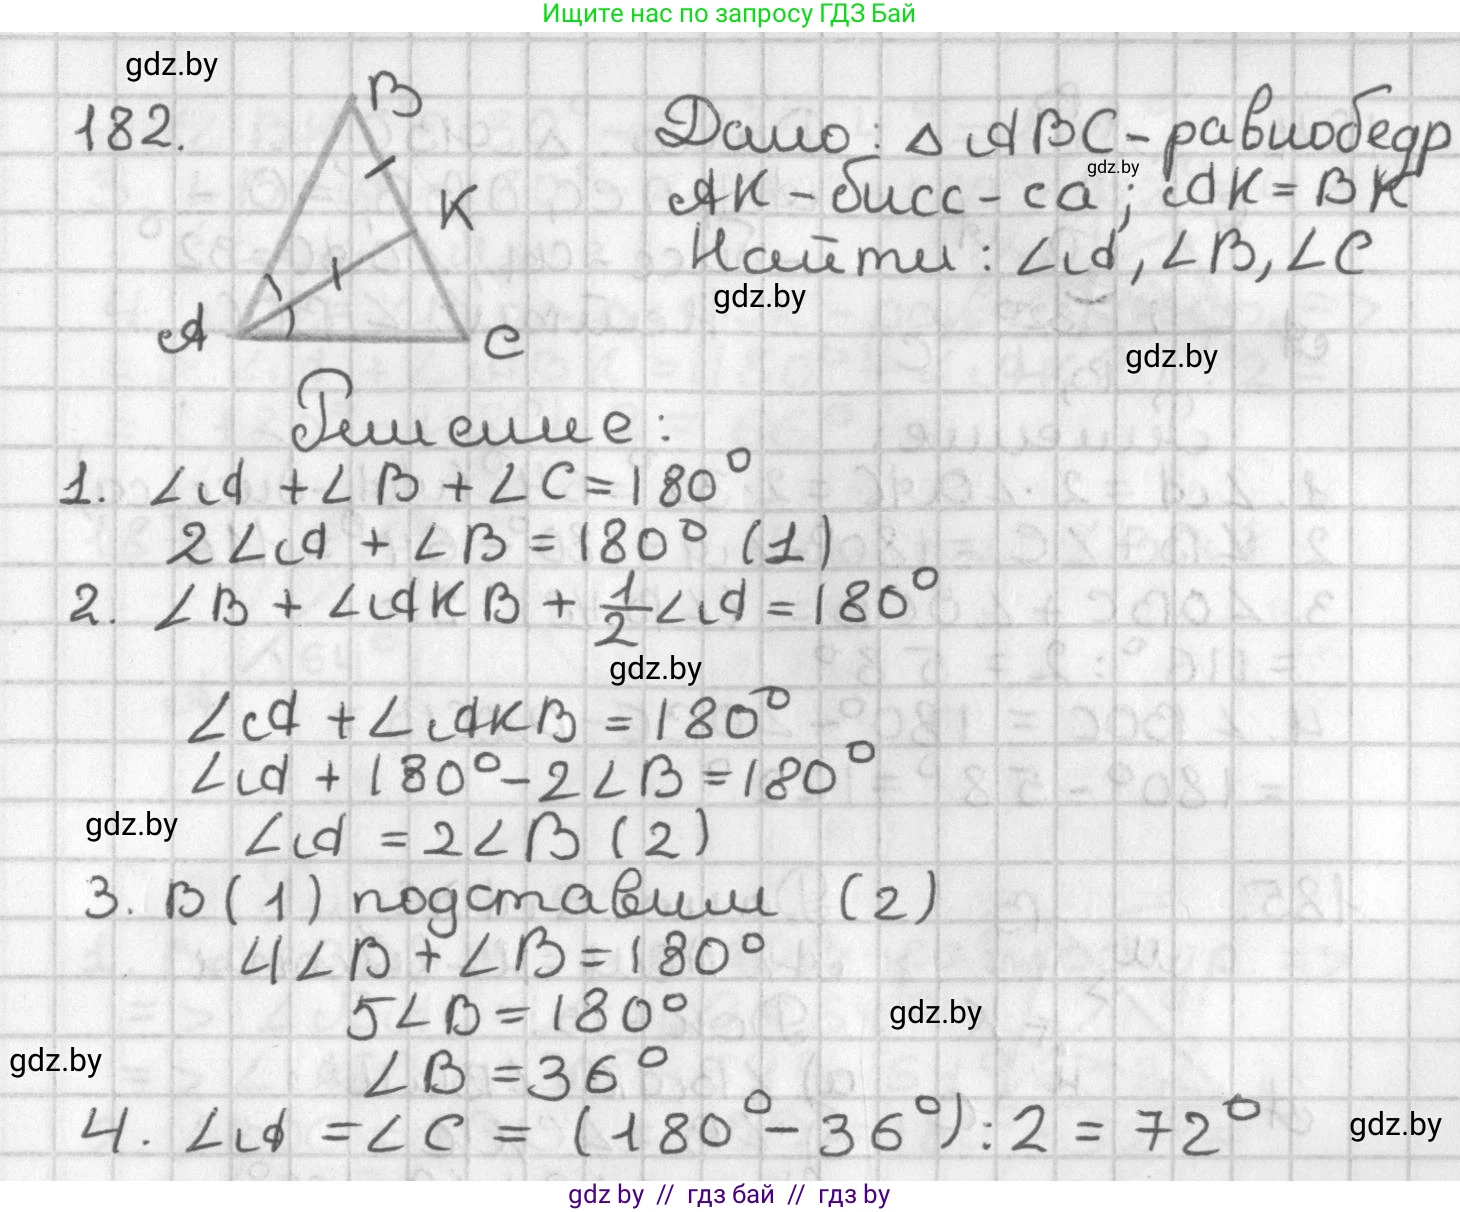 Ищите нас по запросу ГДЗ Бай
gdz.by
182.
B
K
A
C
Дано: △ ABC - равнобедр
gdz.by
AK - бисс-са; AK = BK
Найти: ∠A, ∠B, ∠C
gdz.by
gdz.by
Решение:
1. ∠A + ∠B + ∠C = 180°
2∠A + ∠B = 180° (1)
2. ∠B + ∠AKB + 1/2 ∠A = 180°
gdz.by
∠A + ∠AKB = 180°
∠A + 180° - 2∠B = 180°
gdz.by
∠A = 2∠B (2)
3. В (1) подставим (2)
4∠B + ∠B = 180°
5∠B = 180°
gdz.by
gdz.by
∠B = 36°
4. ∠A = ∠C = (180° - 36°) : 2 = 72°
gdz.by
gdz by // гдз бай // gdz by